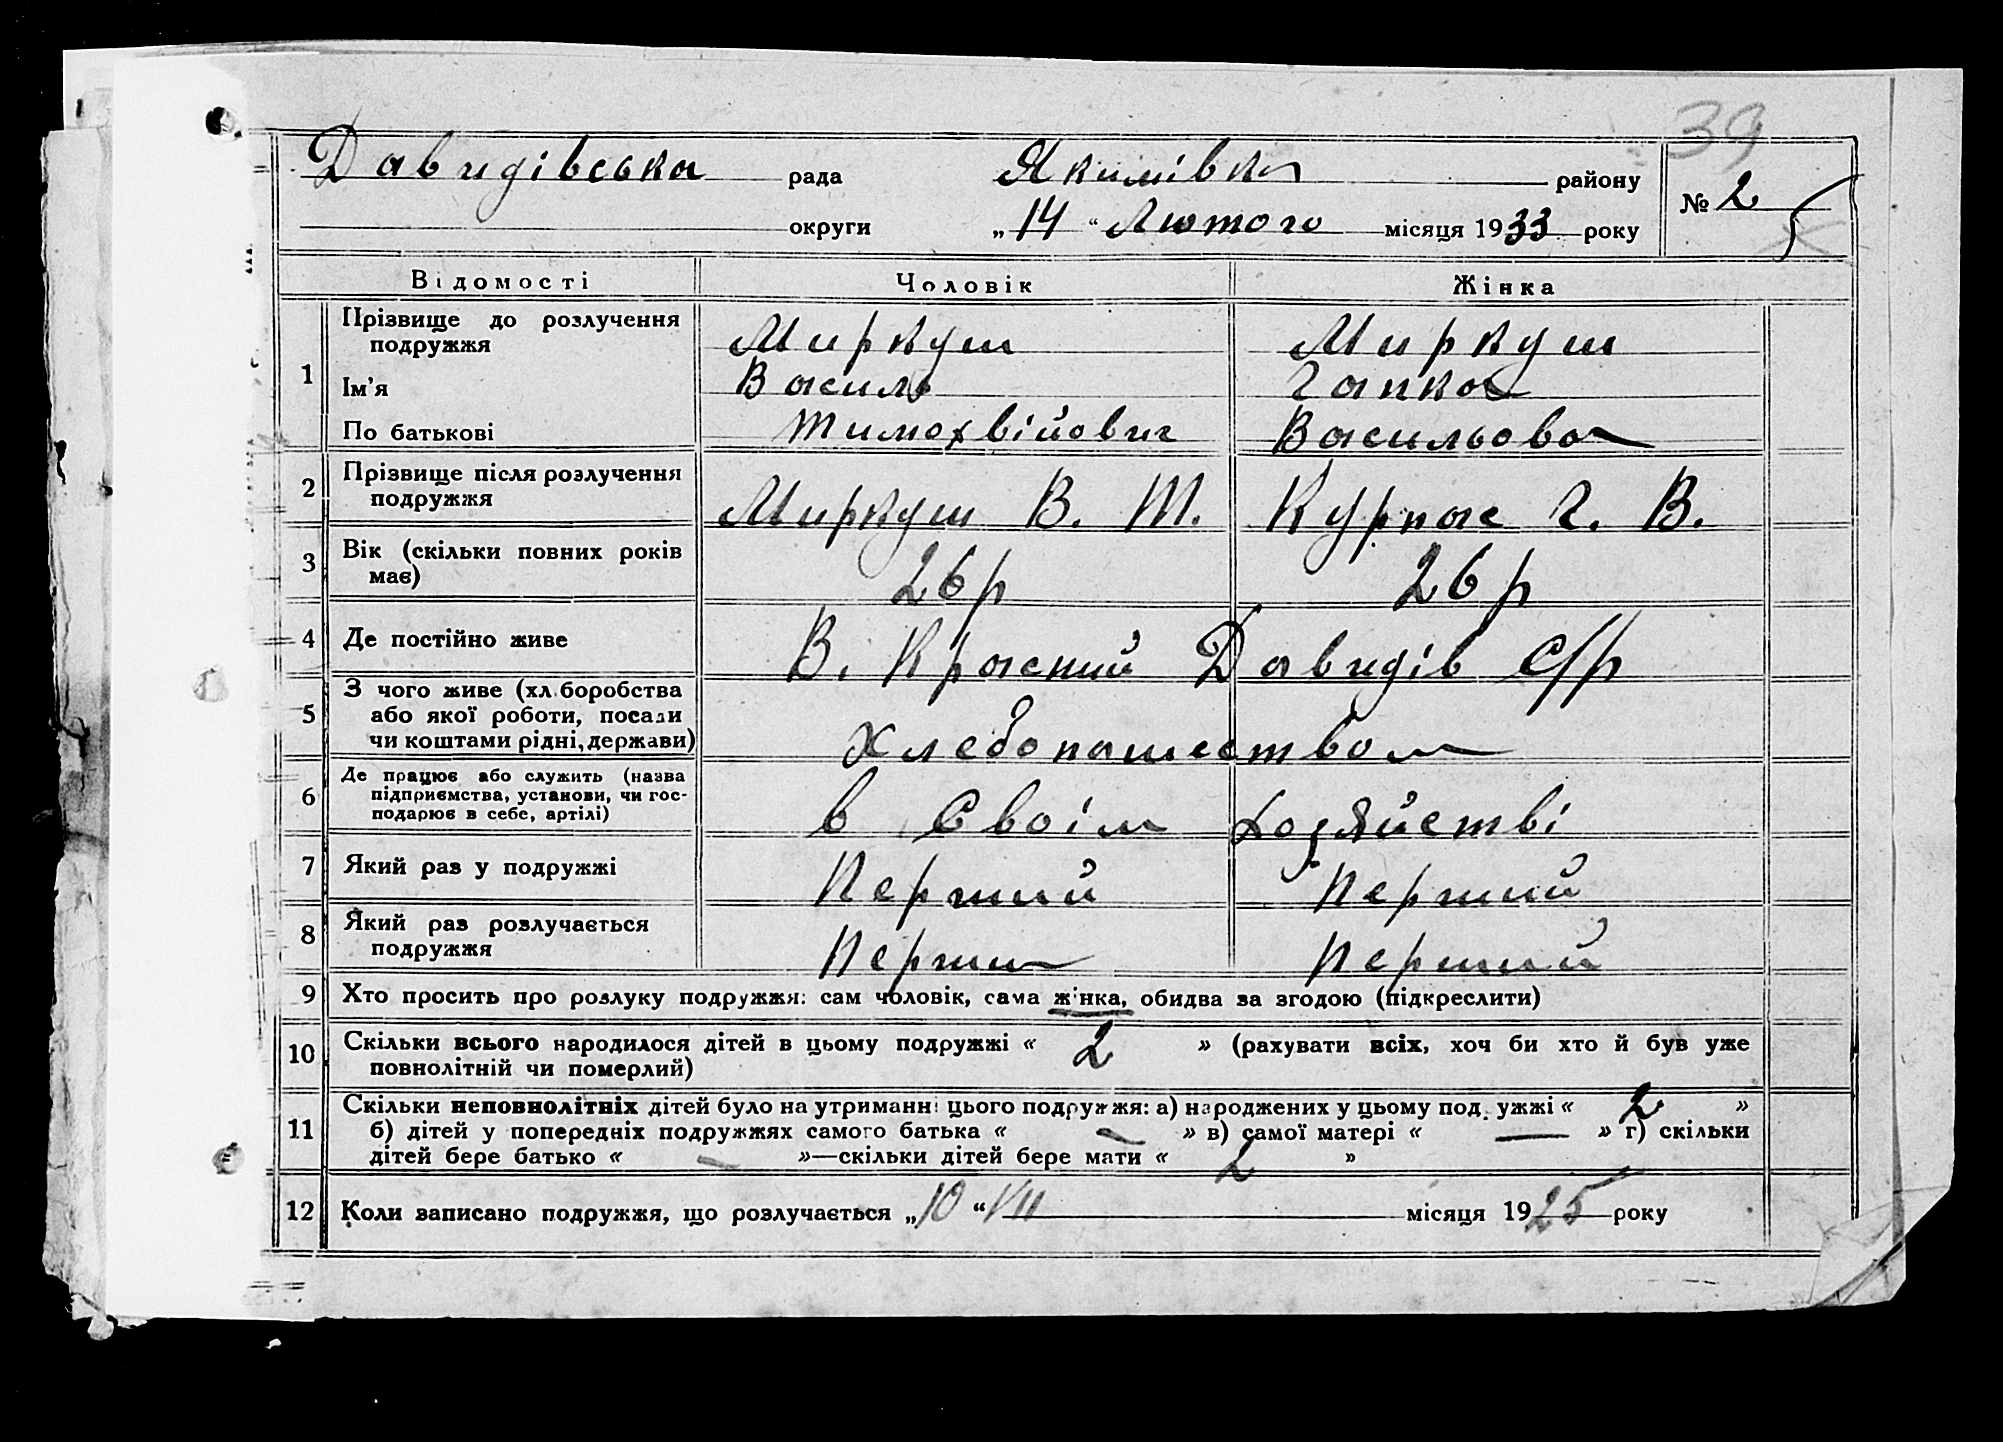 39
Давидівська рада Якимівка району № 2
округи „14“ Лютого місяця 1933 року 5
Відомості Чоловік Жінка
1 Прізвище до розлучення подружжя Миркуш Миркуш
Ім'я Василь Гапка
По батькові Тимохвійович Васильова
2 Прізвище після розлучення
подружжя Миркуш В. Т. Курпас Г. В.
3 Вік (скільки повних років
має) 26 р 26 р
4 Де постійно живе В. Красний Давидів С/р
5 З чого живе (хліборобства
або якої роботи, посади
чи коштами рідні, держави) Хлебопашеством
6 Де працює або служить (назва
підприємства, установи, чи гос-
подарює в себе, артілі) в своїм хозяйстві
7 Який раз у подружжі Перший Перший
8 Який раз розлучається
подружжя Перши Перший
9 Хто просить про розлуку подружжя: сам чоловік, сама жінка, обидва за згодою (підкреслити)
10 Скільки всього народилося дітей в цьому подружжі « 2 » (рахувати всіх, хоч би хто й був уже
повнолітній чи померлий)
11 Скільки неповнолітніх дітей було на утриманні цього подружжя: а) народжених у цьому подружжі « 2 »
б) дітей у попередніх подружжях самого батька « — » в) самої матері « — » г) скільки
дітей бере батько « — »—скільки дітей бере мати « 2 »
12 Коли записано подружжя, що розлучається „10“ VII місяця 1925 року